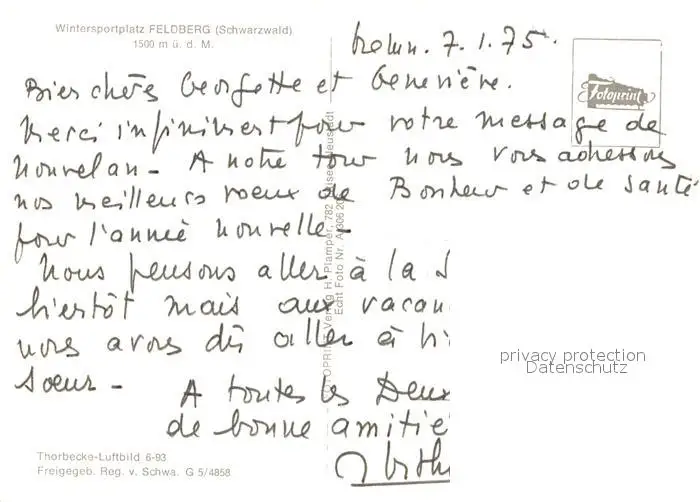 Wintersportplatz FELDBERG (Schwarzwald)
1500 m ü. d. M.
7.1.75.
Fotoprint
Bien chères Georgette et Geneviève.
Merci infiniment pour votre message de
nouvel an - A notre tour nous vous adressons
nos meilleurs voeux de Bonheur et de santé
pour l'année nouvelle -
Nous pensons aller à la
bientôt mais aux vacan
nous avons dû aller à
soeur - A toutes les Deux
de bonne amitié
FOTOPRINT-Verlag H. Plamper, 782 Titisee-Neustadt
Echt Foto Nr. A 306 20
privacy protection
Datenschutz
Thorbecke-Luftbild 6-93
Freigegeb. Reg. v. Schwa. G 5/4858